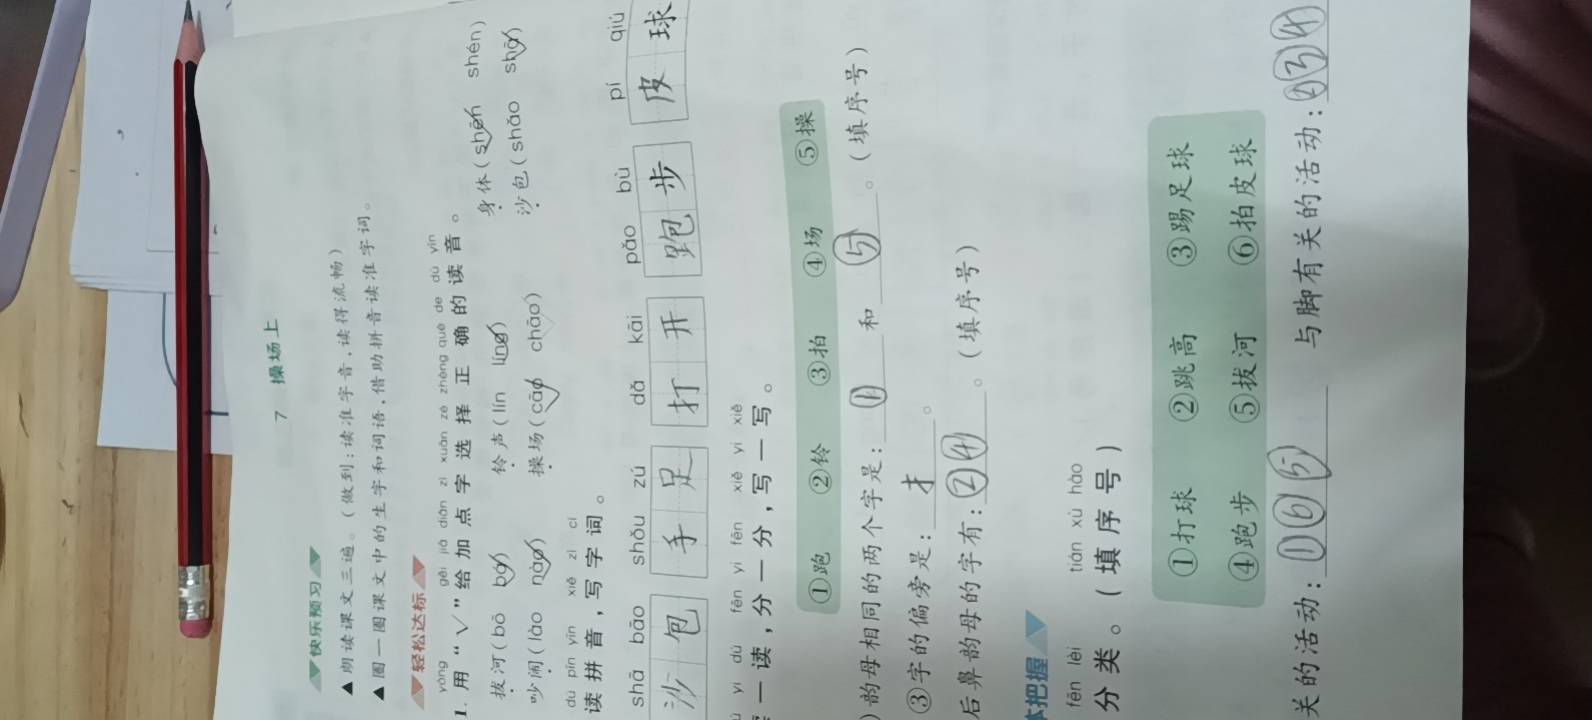 7 操场上
快乐预习
▲朗读课文三遍。(做到:读准字音,读得流畅)
▲圈一圈课文中的生字和词语,借助拼音读准字词。
轻松达标
yòng gěi jiā diǎn zì xuǎn zé zhèng què de dú yīn
1. 用“√”给加点字选择正确的读音。
拔河(bō bá√) 铃声(lín líng√) 身体(shēn√ shén)
吵闹(lào nào√) 操场(cāo√ chāo) 沙包(shǎo shā√)
dú pīn yīn xiě zì cí
读拼音,写字词。
shā bāo shǒu zú dǎ kāi pǎo bù pí qiú
沙包 手足 打开 跑步 皮球
yì dú fēn yì fēn xiě yì xiě
一读,分一分,写一写。
①跑 ②铃 ③拍 ④场 ⑤操
)韵母相同的两个字是:① 和 ⑤。(填序号)
③字的偏旁是:扌。
后鼻韵母的字有:②④。(填序号)
体把握
fēn lèi tián xù hào
分类。(填序号)
①打球 ②跳高 ③踢足球
④跑步 ⑤拔河 ⑥拍皮球
关的活动:①⑥⑤ 与脚有关的活动:②③④